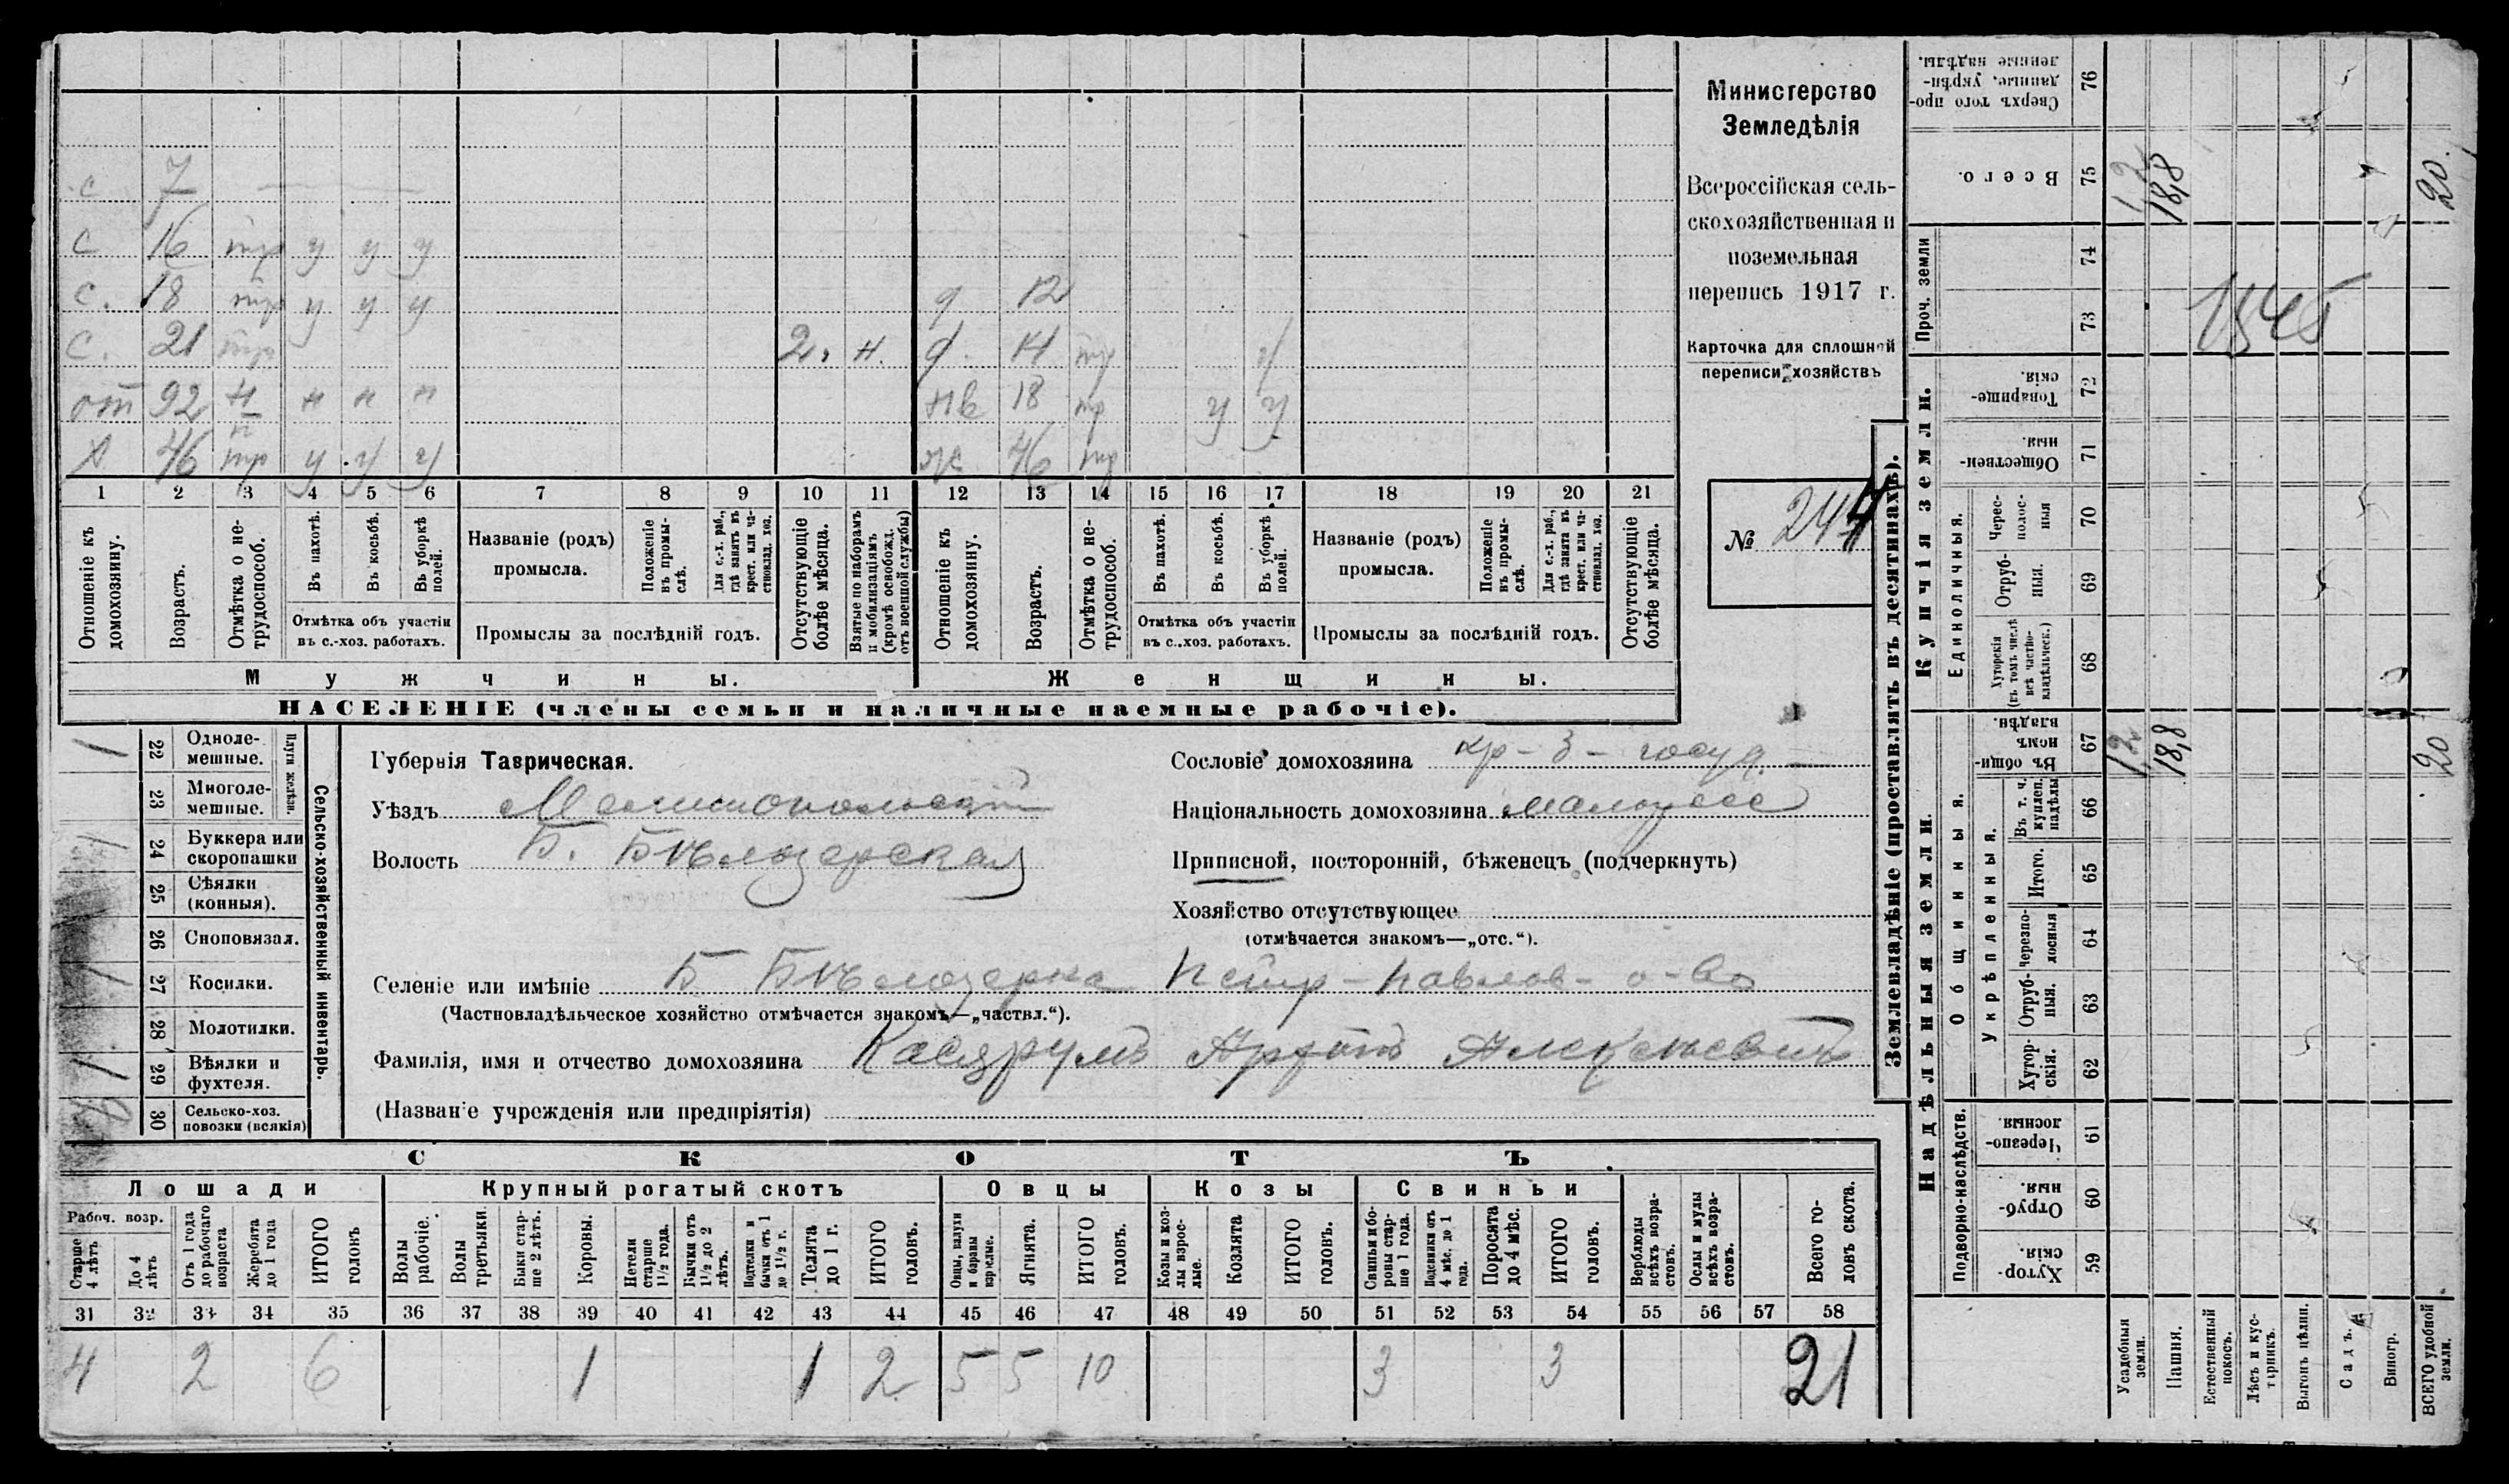 с 7
с 16 тр у у у
с. 18 тр у у у д 12
с. 21 тр 2. н. д. 14 тр у
от 92 н н н н нв 18 тр у у
х 46 тр у у у ж 46 тр
1 2 3 4 5 6 7 8 9 10 11 12 13 14 15 16 17 18 19 20 21
Отношеніе къ домохозяину.
Возрастъ.
Отмѣтка о не-трудоспособ.
Въ пахотѣ.
Въ косьбѣ.
Въ уборкѣ полей.
Отмѣтка объ участіи въ с.-хоз. работахъ.
Названіе (родъ) промысла.
Положеніе въ промы-слѣ.
Для с.-х. раб., гдѣ занятъ въ крест. или ча-стновлад. хоз.
Промыслы за послѣдній годъ.
Отсутствующіе болѣе мѣсяца.
Взятые по наборамъ и мобилизаціямъ (кромѣ освобожд. отъ военной службы)
Отношеніе къ домохозяину.
Возрастъ.
Отмѣтка о не-трудоспособ.
Въ пахотѣ.
Въ косьбѣ.
Въ уборкѣ полей.
Отмѣтка объ участіи въ с.-хоз. работахъ.
Названіе (родъ) промысла.
Положеніе въ промы-слѣ.
Для с.-х. раб., гдѣ занята въ крест. или ча-стновлад. хоз.
Промыслы за послѣдній годъ.
Отсутствующіе болѣе мѣсяца.
Мужчины. Женщины.
НАСЕЛЕНІЕ (члены семьи и наличные наемные рабочіе).
Министерство
Земледѣлія
Всероссійская сель-
скохозяйственная и
поземельная
перепись 1917 г.
Карточка для сплошной
переписи хозяйствъ
№ 244
1 22 Одноле-мешные.
23 Многоле-мешные.
Плуги желѣзн.
1 24 Буккера или скоропашки
25 Сѣялки (конныя).
26 Сноповязал.
1 27 Косилки.
28 Молотилки.
1 29 Вѣялки и фухтеля.
2 30 Сельско-хоз. повозки (всякія)
Сельско-хозяйственный инвентарь.
Губернія Таврическая.
Уѣздъ Мелитопольскій
Волость Б. Бѣлозерская
Сословіе домохозяина кр-з- госуд.
Національность домохозяина малорос
Приписной, посторонній, бѣженецъ (подчеркнуть)
Хозяйство отсутствующее
(отмѣчается знакомъ—„отс.“).
Селеніе или имѣніе Б Бѣлозерка Петр-Павлов- о-во
(Частновладѣльческое хозяйство отмѣчается знакомъ—„частвл.“).
Фамилія, имя и отчество домохозяина Алексѣевичъ
(Названіе учрежденія или предпріятія)
СКОТЪ.
Лошади Крупный рогатый скотъ Овцы Козы Свиньи
Рабоч. возр.
Старше 4 лѣтъ
До 4 лѣтъ
Отъ 1 года до рабочаго возраста
Жеребята до 1 года
ИТОГО головъ
Волы рабочіе.
Волы третьяки.
Быки стар-ше 2 лѣтъ.
Коровы.
Нетели старше 1½ года.
Бычки отъ 1½ до 2 лѣтъ.
Подтелки и бычки отъ 1 до 1½ г.
Телята до 1 г.
ИТОГО головъ.
Овцы, валухи и бараны взрослые.
Ягнята.
ИТОГО головъ.
Козы и коз-лы взрос-лые.
Козлята
ИТОГО головъ.
Свиньи и бо-ровы стар-ше 1 года.
Подсвинки отъ 4 мѣс. до 1 года.
Поросята до 4 мѣс.
ИТОГО головъ.
Верблюды всѣхъ возра-стовъ.
Ослы и мулы всѣхъ возра-стовъ.
Всего го-ловъ скота.
31 32 33 34 35 36 37 38 39 40 41 42 43 44 45 46 47 48 49 50 51 52 53 54 55 56 57 58
4 2 6 1 1 2 5 5 10 3 3 21
Землевладѣніе (проставлять въ десятинахъ).
Надѣльныя земли. Купчія земли. Проч. земли
Подворно-наслѣдств. Общинныя. Укрѣпленныя. Единоличныя.
Сверхъ того про-данные, укрѣп-ленные надѣлы. 76
Всего. 75 1,2 18,8 20.
74
73 1545
Товарище-скія. 72
Обществен-ныя. 71
Черес-полос-ныя 70
Отруб-ныя. 69
Хуторскія (въ томъ числѣ всѣ частно-владѣльческ.) 68
Въ общин-номъ владѣн. 67 1,2 18,8 20
Въ т. ч. куплен. надѣлы 66
Итого. 65
Черезпо-лосныя 64
Отруб-ныя. 63
Хутор-скія. 62
Черезпо-лосныя 61
Отруб-ныя. 60
Хутор-скія. 59
Усадебныя земли.
Пашня.
Естественный покосъ.
Лѣсъ и кус-тарникъ.
Выгонъ цѣлин.
Садъ.
Виногр.
ВСЕГО удобной земли.